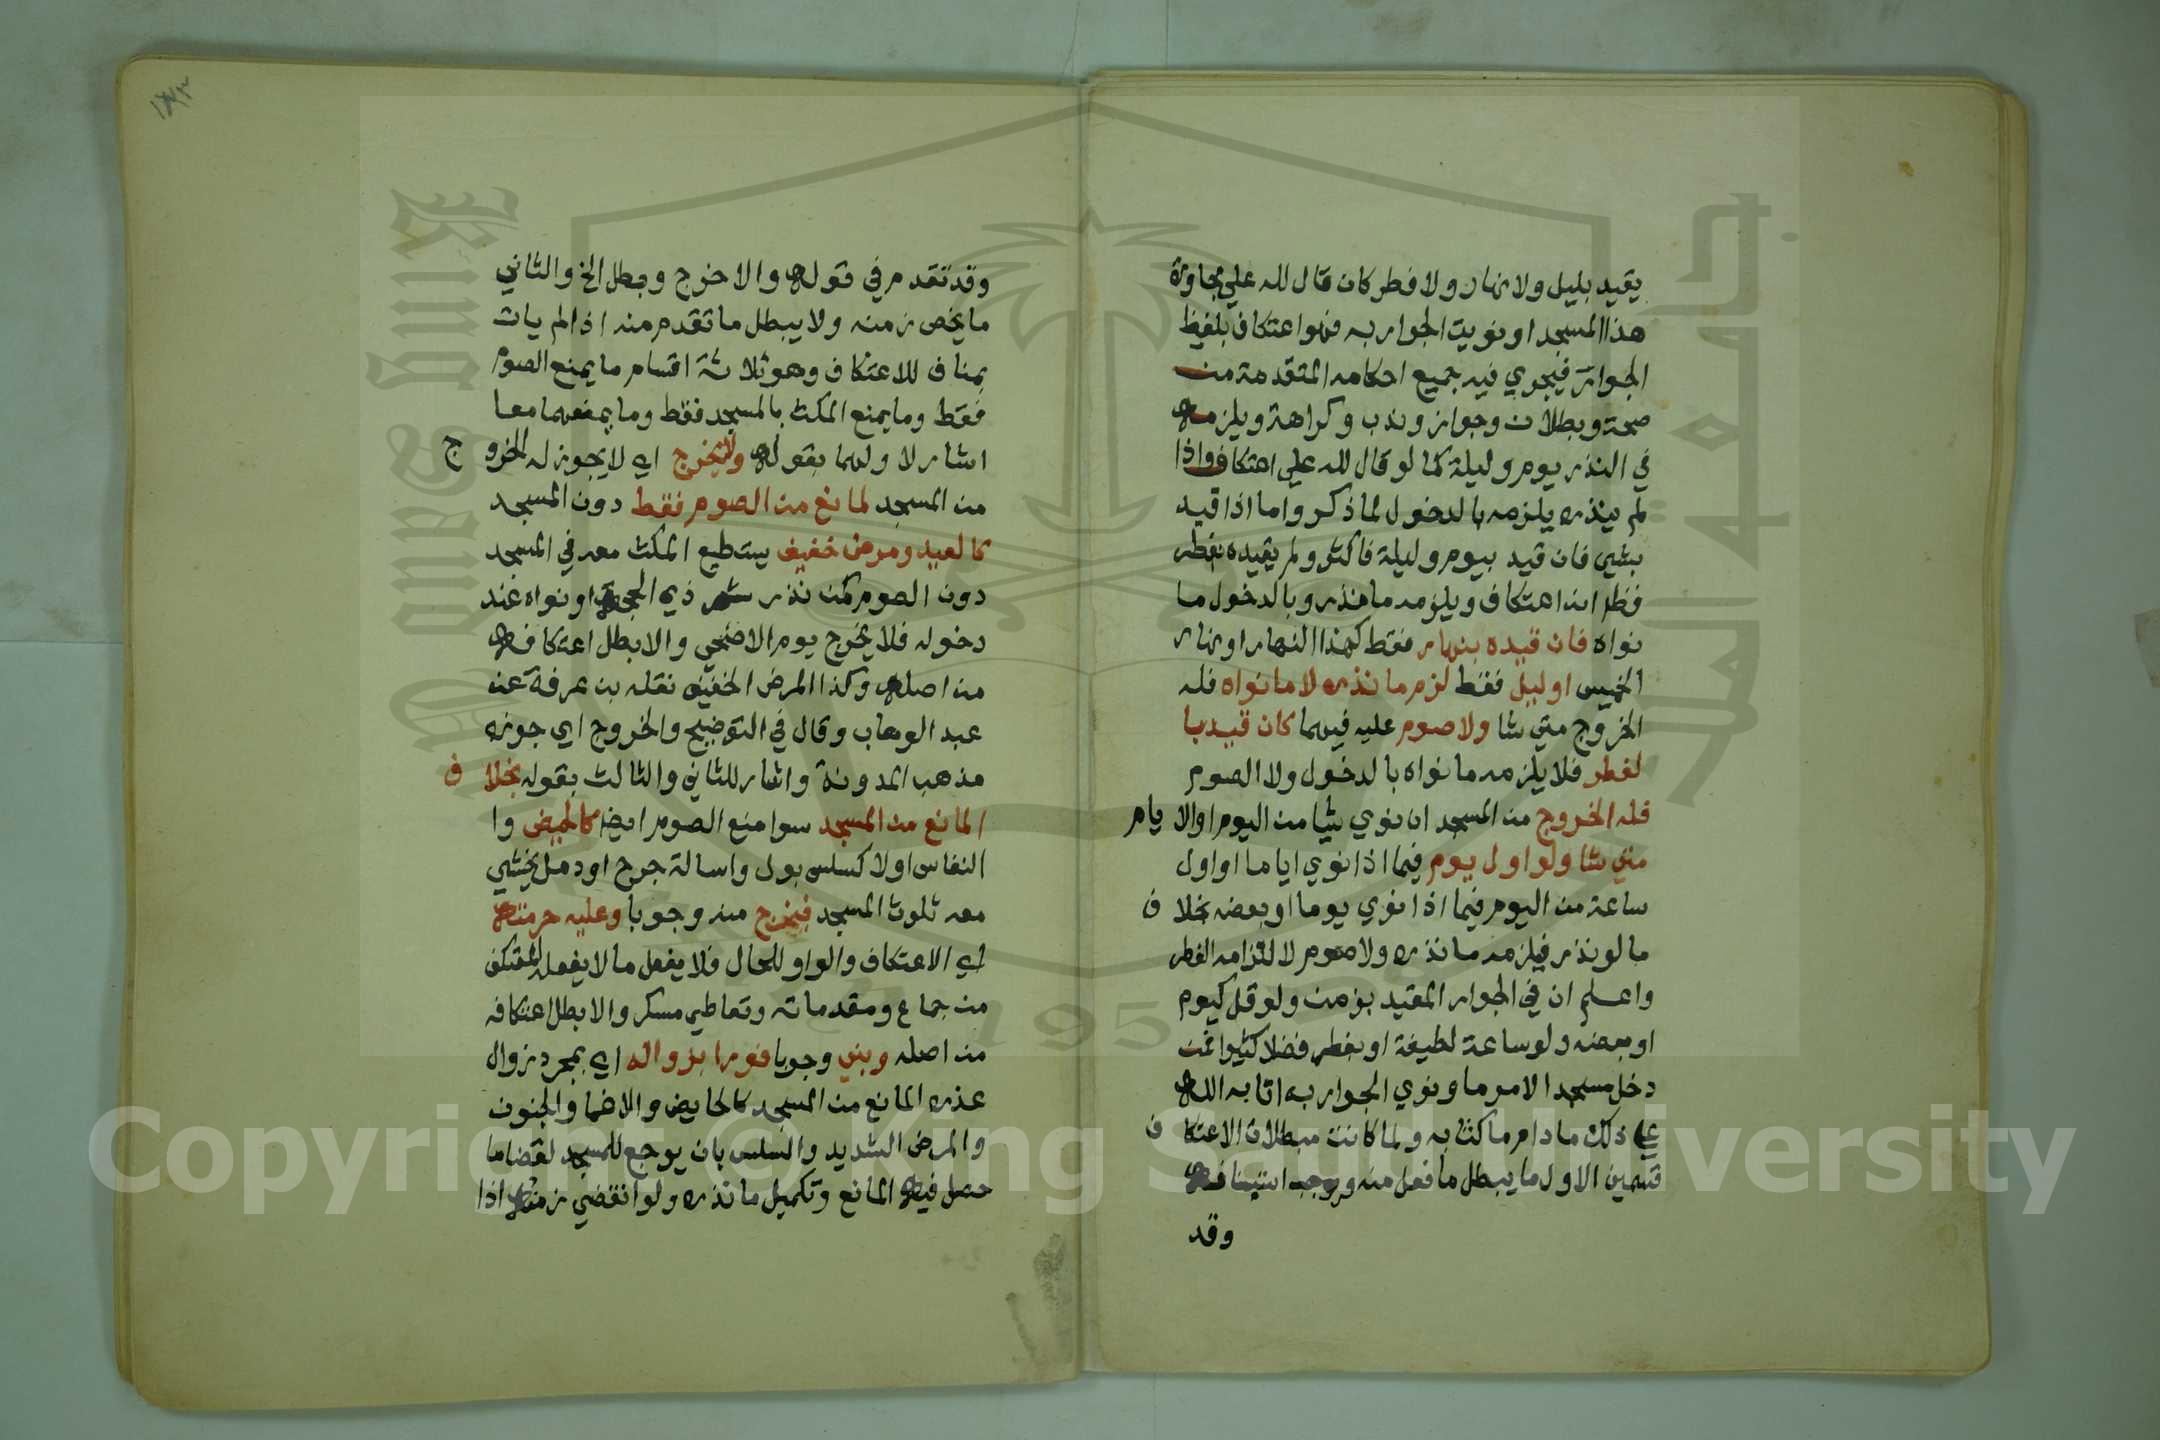 يقيد بليل ولا نهار ولا فطر كان قال لله علي مجاورة
هذا المسجد او نويت الجوار به فهو اعتكاف بلفظ
الجوار فيجري فيه جميع احكامه المتقدمة من
صحة وبطلان وجواز وندب وكراهة ويلزمه
في النذر يوم وليلة كما لو قال لله علي اعتكاف واذا
لم ينذره يلزمه بالدخول لما ذكر واما اذا قيد
بشي فان قيد بيوم وليلة فاكثر ولم يقيده بفطر
فظاهر انه اعتكاف ويلزمه ما نذره وبالدخول ما
نواه فان قيده بنهار فقط كهذا النهار او نهار
الخميس او ليل فقط لزم ما نذره لا ما نواه فله
الخروج متي شا ولا صوم عليه فيهما كان قيد با
لفطر فلا يلزمه ما نواه بالدخول ولا الصوم
فله الخروج من المسجد ان نوي شيا من اليوم او الا يام
متي شا ولو اول يوم فيما اذا نوي اياما او اول
ساعة من اليوم فيما اذا نوي يوما او بعضه بخلا ف
ما لو نذر فيلزمه ما نذره ولا صوم لالتزامه الفطر
واعلم ان في الجوار المقيد بزمن ولو قل كيوم
او بعضه ولو ساعة لطيفة او بفطر فضلا كثيرا فمن
دخل مسجدا لامر ما ونوي الجوار به اثابه الله
علي ذلك ما دام ماكثا به ولما كانت مبطلات الاعتكا ف
قسمين الاول ما يبطل ما فعل منه ويوجب استينافه
وقد
١٧٣
وقد تقدم في قوله والا خرج وبطل الخ والثاني
ما يخص زمنه ولا يبطل ما تقدم منه اذا لم يات
بمناف للاعتكاف وهو ثلاثة اقسام ما يمنع الصوم
فقط وما يمنع المكث بالمسجد فقط وما يمنعهما معا
اشار لاولهما بقوله ولا يخرج اي لا يجوز له الخرو ج
من المسجد لمانع من الصوم فقط دون المسجد
كالعيد ومرض خفيف يستطيع المكث معه في المسجد
دون الصوم كمن نذر شهر ذي الحجة او نواه عند
دخوله فلا يخرج يوم الاضحي والا بطل اعتكافه
من اصله وكذا المرض الخفيف نقله بن عرفة عن
عبد الوهاب وقال في التوضيح والخروج اي جوزه
مذهب المدونة واشار للثاني والثالث بقوله بخلا ف
المانع من المسجد سوا منع الصوم ايضا كالحيض وا
النفاس او لا كسلس بول واسالة جرح او دمل يخشي
معه تلوث المسجد فيخرج منه وجوبا وعليه حرمته
اي الاعتكاف والواو للحال فلا يفعل ما لا يفعله المعتكف
من جماع ومقدماته وتعاطي مسكر والا بطل اعتكافه
من اصله وبني وجوبا فورا بزواله اي بمجرد زوال
عذره المانع من المسجد كالحايض والاغما والجنون
والمرض الشديد والسلس بان يرجع للمسجد لقضا ما
حصل فيه المانع وتكميل ما نذره ولو انقضي زمنه اذا